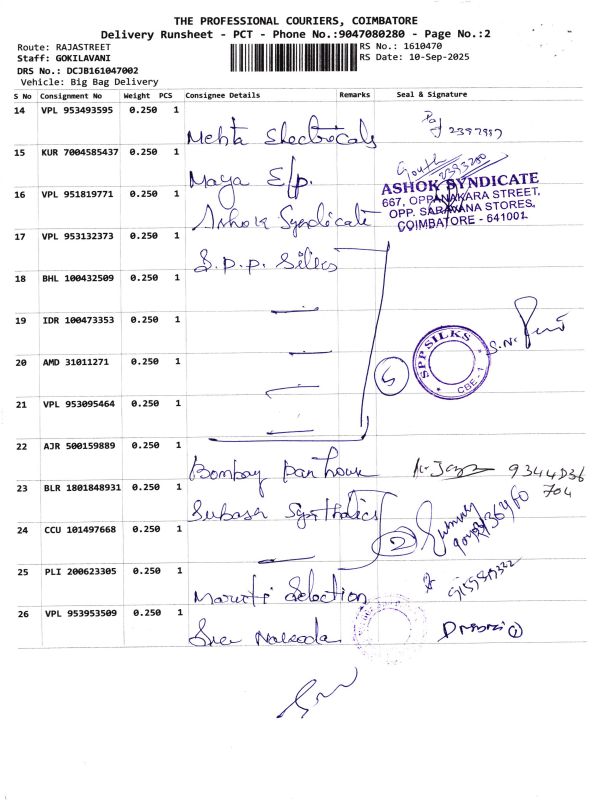 THE PROFESSIONAL COURIERS, COIMBATORE
Delivery Runsheet - PCT - Phone No.:9047080280 - Page No.:2
Route: RAJASTREET
RS No.: 1610470
Staff: GOKILAVANI
RS Date: 10-Sep-2025
DRS No.: DCJB161047002
Vehicle: Big Bag Delivery
S No Consignment No Weight PCS Consignee Details Remarks Seal & Signature
14 VPL 953493595 0.250 1
Mehta Electricals
15 KUR 7004585437 0.250 1
Maya E/p.
16 VPL 951819771 0.250 1
Ashok Syndicate
ASHOK SYNDICATE
667, OPPANAKARA STREET,
OPP. SARAVANA STORES,
COIMBATORE - 641001.
17 VPL 953132373 0.250 1
S.P.P. Silks
18 BHL 100432509 0.250 1
19 IDR 100473353 0.250 1
20 AMD 31011271 0.250 1
5
SPP SILKS
CBE - 1
21 VPL 953095464 0.250 1
22 AJR 500159889 0.250 1
Bombay
23 BLR 1801848931 0.250 1
24 CCU 101497668 0.250 1
2
25 PLI 200623305 0.250 1
Maruti Selection
26 VPL 953953509 0.250 1
Sree